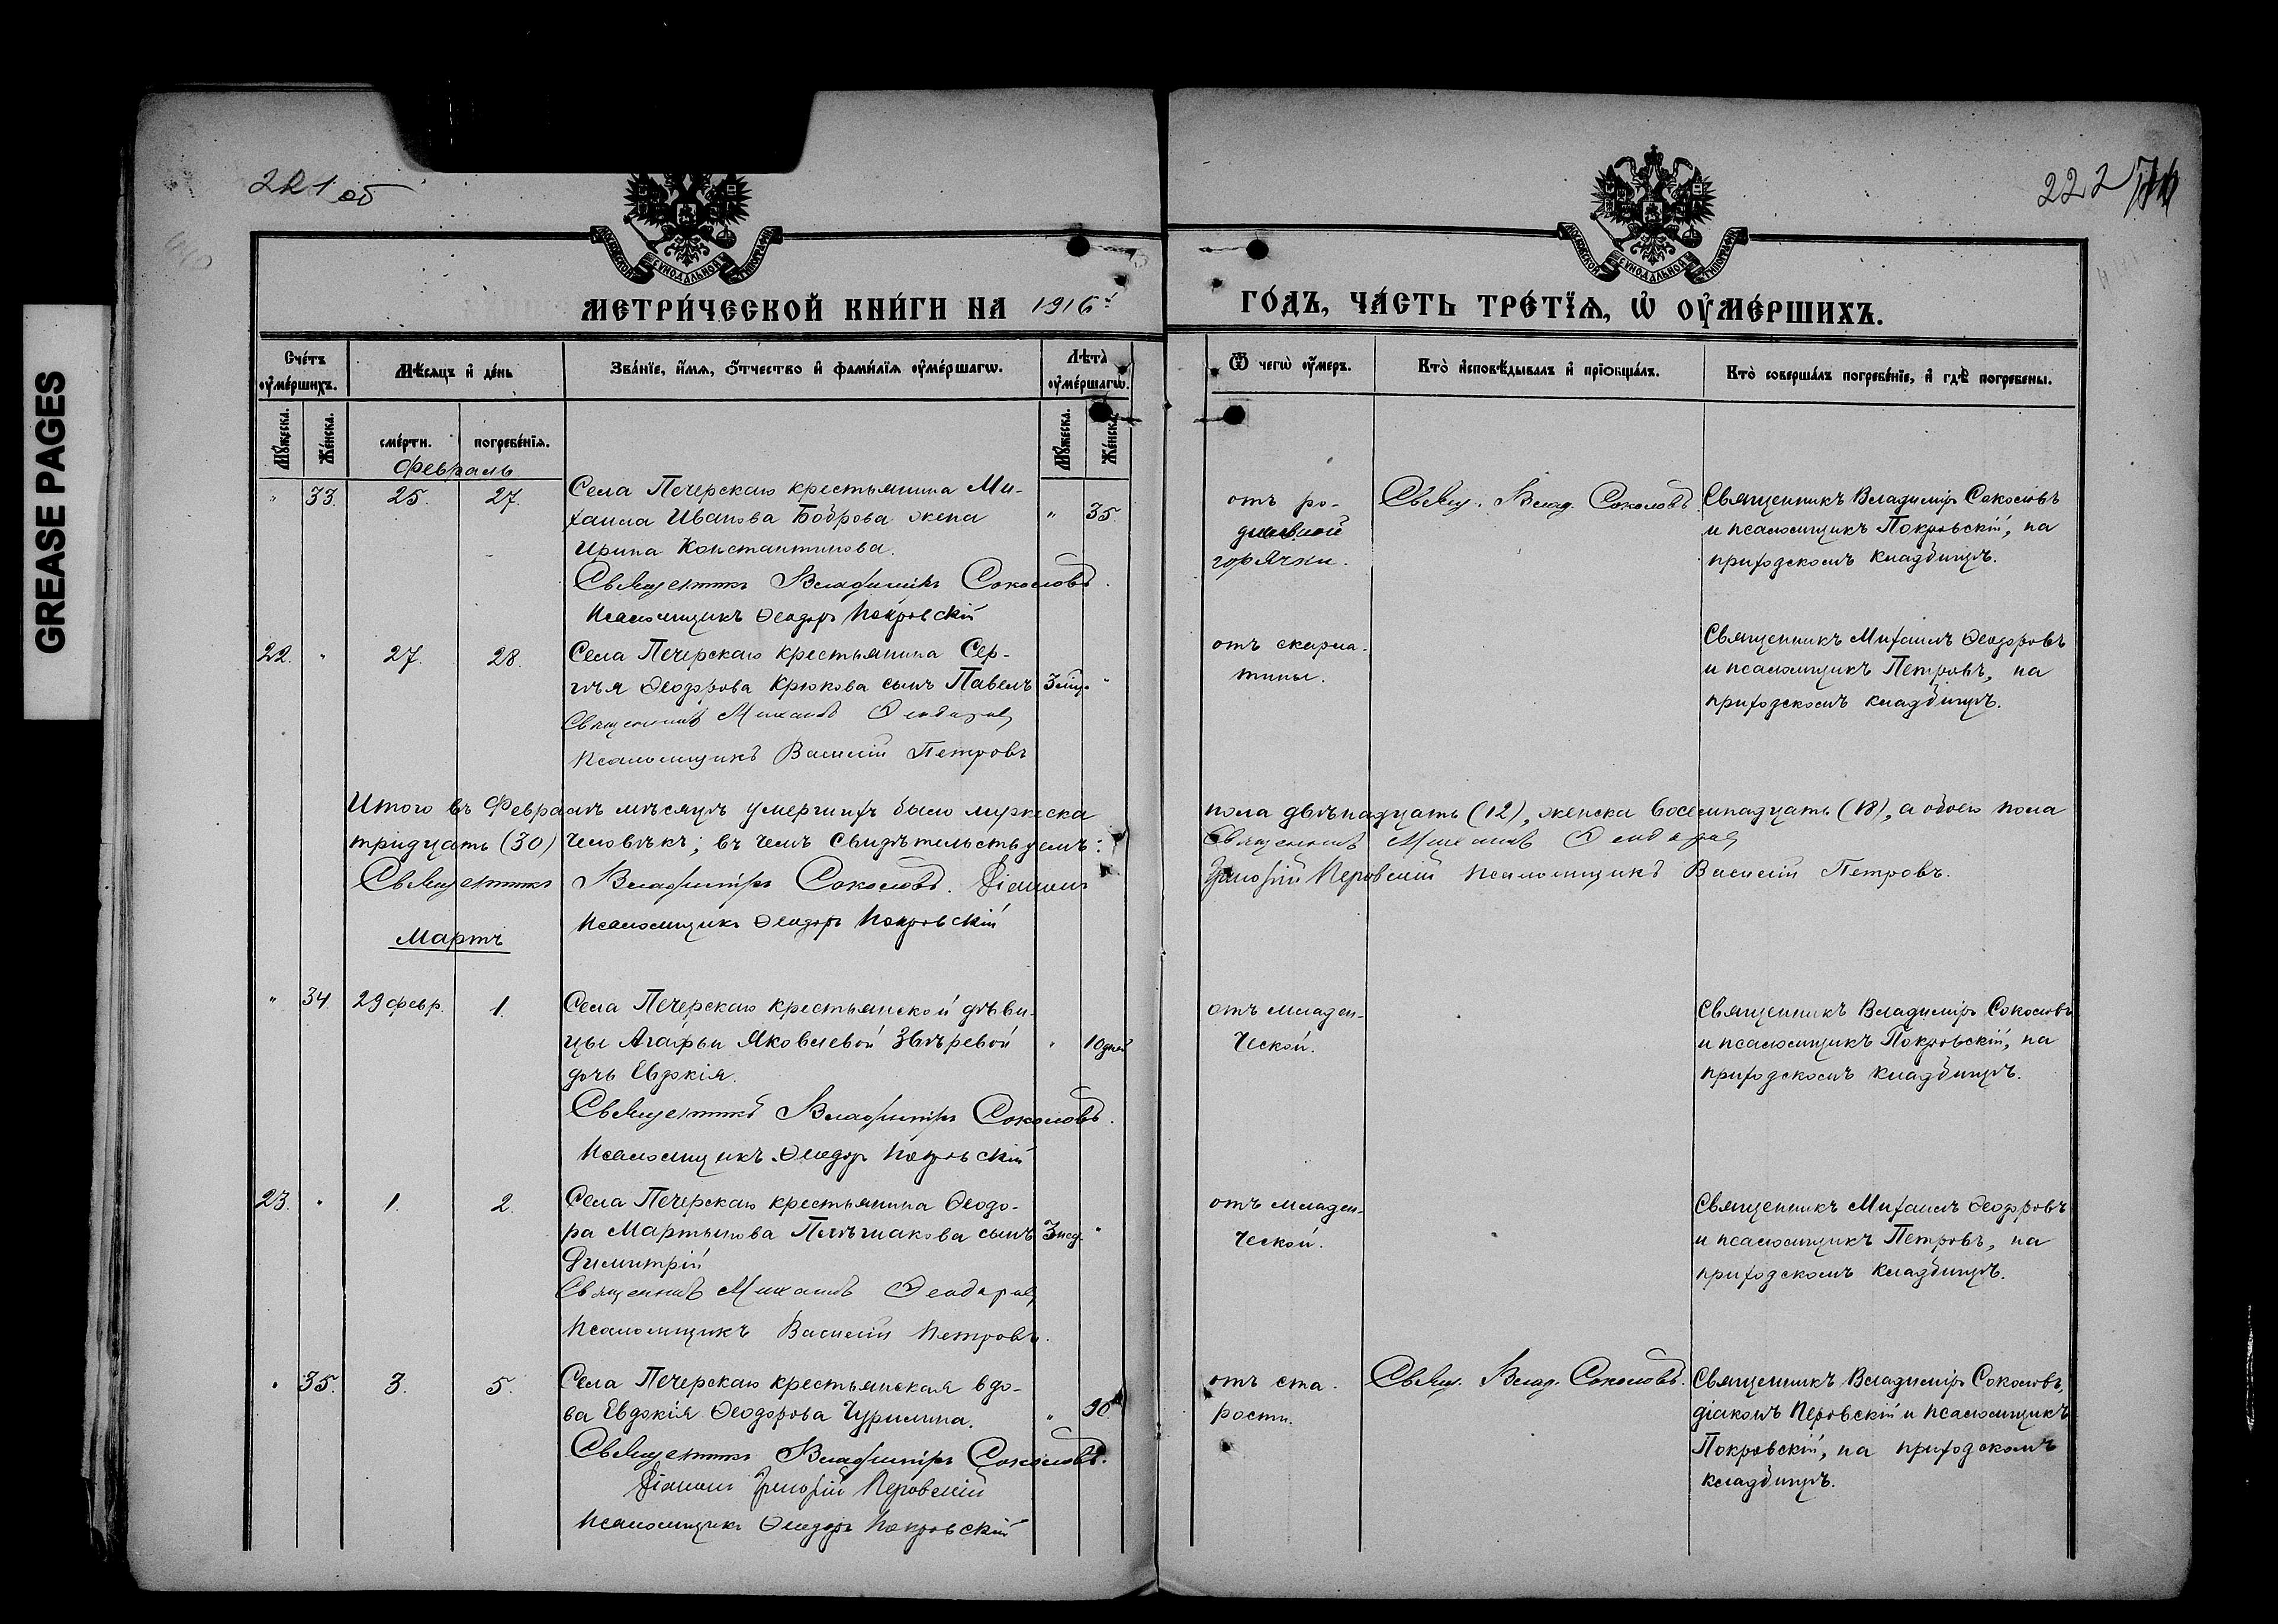 GREASE PAGES
221 об
222
МЕТРИ́ЧЕСКОЙ КНИ́ГИ НА 1916 й
ГО́ДЪ, ЧА́СТЬ ТРЕ́ТЇѦ, Ѡ҆ ОУ҆МЕ́РШИХЪ.
Сче́тъ оу҆ме́ршихъ.
Мѣ́сяцъ и҆ де́нь
Зва́нїе, и҆́мѧ, о҆́тчество и҆ фами́лїѧ оу҆ме́ршагѡ.
Лѣ́та оу҆ме́ршагѡ.
Ѿ чегѡ̀ оу҆́меръ.
Кто̀ и҆сповѣ́дывалъ и҆ прїѻбща́лъ.
Кто̀ соверша́лъ погребе́нїе, и҆ гдѣ̀ погребены.
Мꙋ́жеска.
Же́нска.
сме́рти.
погребе́нїѧ.
Мꙋ́жеска.
Же́нска.
Февраль
" 33. 25. 27. Села Печерскаго крестьянина Ми-
хаила Иванова Боброва жена " 35.
Ирина Константинова.
Священникъ Владимiръ Соколовъ.
Псаломщикъ Ѳеодоръ Покровскій
отъ ро-
дильной
горячки.
Свящ. Влад. Соколовъ.
Священникъ Владиміръ Соколовъ
и псаломщикъ Покровскій, на
приходскомъ кладбищѣ.
22. " 27. 28. Села Печерскаго крестьянина Сер-
гѣя Ѳеодорова Крюкова сынъ Павелъ 3 мѣс. "
Священникъ Михаилъ Ѳеодоровъ
Псаломщикъ Василій Петровъ
отъ скарла-
тины.
Священникъ Михаилъ Ѳеодоровъ
и псаломщикъ Петровъ, на
приходскомъ кладбищѣ.
Итого въ Февралѣ мѣсяцѣ умершихъ было мужеска пола двѣнадцать (12), женска восемнадцать (18), а обоего пола
тридцать (30) человѣкъ; въ чемъ свидѣтельствуемъ: Священникъ Михаилъ Ѳеодоровъ
Священникъ Владимiръ Соколовъ. Діаконъ Григорій Перовскій Псаломщикъ Василій Петровъ.
Псаломщикъ Ѳеодоръ Покровскій
Мартъ
" 34. 29 февр. 1. Села Печерскаго крестьянской дѣви-
цы Агафьи Яковлевой Звѣревой " 10 дней
дочь Евдокія.
Священникъ Владимiръ Соколовъ.
Псаломщикъ Ѳеодоръ Покровскій
отъ младен-
ческой.
Священникъ Владиміръ Соколовъ
и псаломщикъ Покровскій, на
приходскомъ кладбищѣ.
23. " 1. 2. Села Печерскаго крестьянина Ѳеодо-
ра Мартынова сынъ 3 нед. "
Димитрій
Священникъ Михаилъ Ѳеодоровъ
Псаломщикъ Василій Петровъ.
отъ младен-
ческой.
Священникъ Михаилъ Ѳеодоровъ
и псаломщикъ Петровъ, на
приходскомъ кладбищѣ.
" 35. 3. 5. Села Печерскаго крестьянская вдо-
ва Евдокія Ѳеодорова Чурилина. " 90.
Священникъ Владимiръ Соколовъ.
Діаконъ Григорій Перовскій
Псаломщикъ Ѳеодоръ Покровскій
отъ ста-
рости.
Свящ. Влад. Соколовъ.
Священникъ Владиміръ Соколовъ,
діаконъ Перовскій и псаломщикъ
Покровскій, на приходскомъ
кладбищѣ.